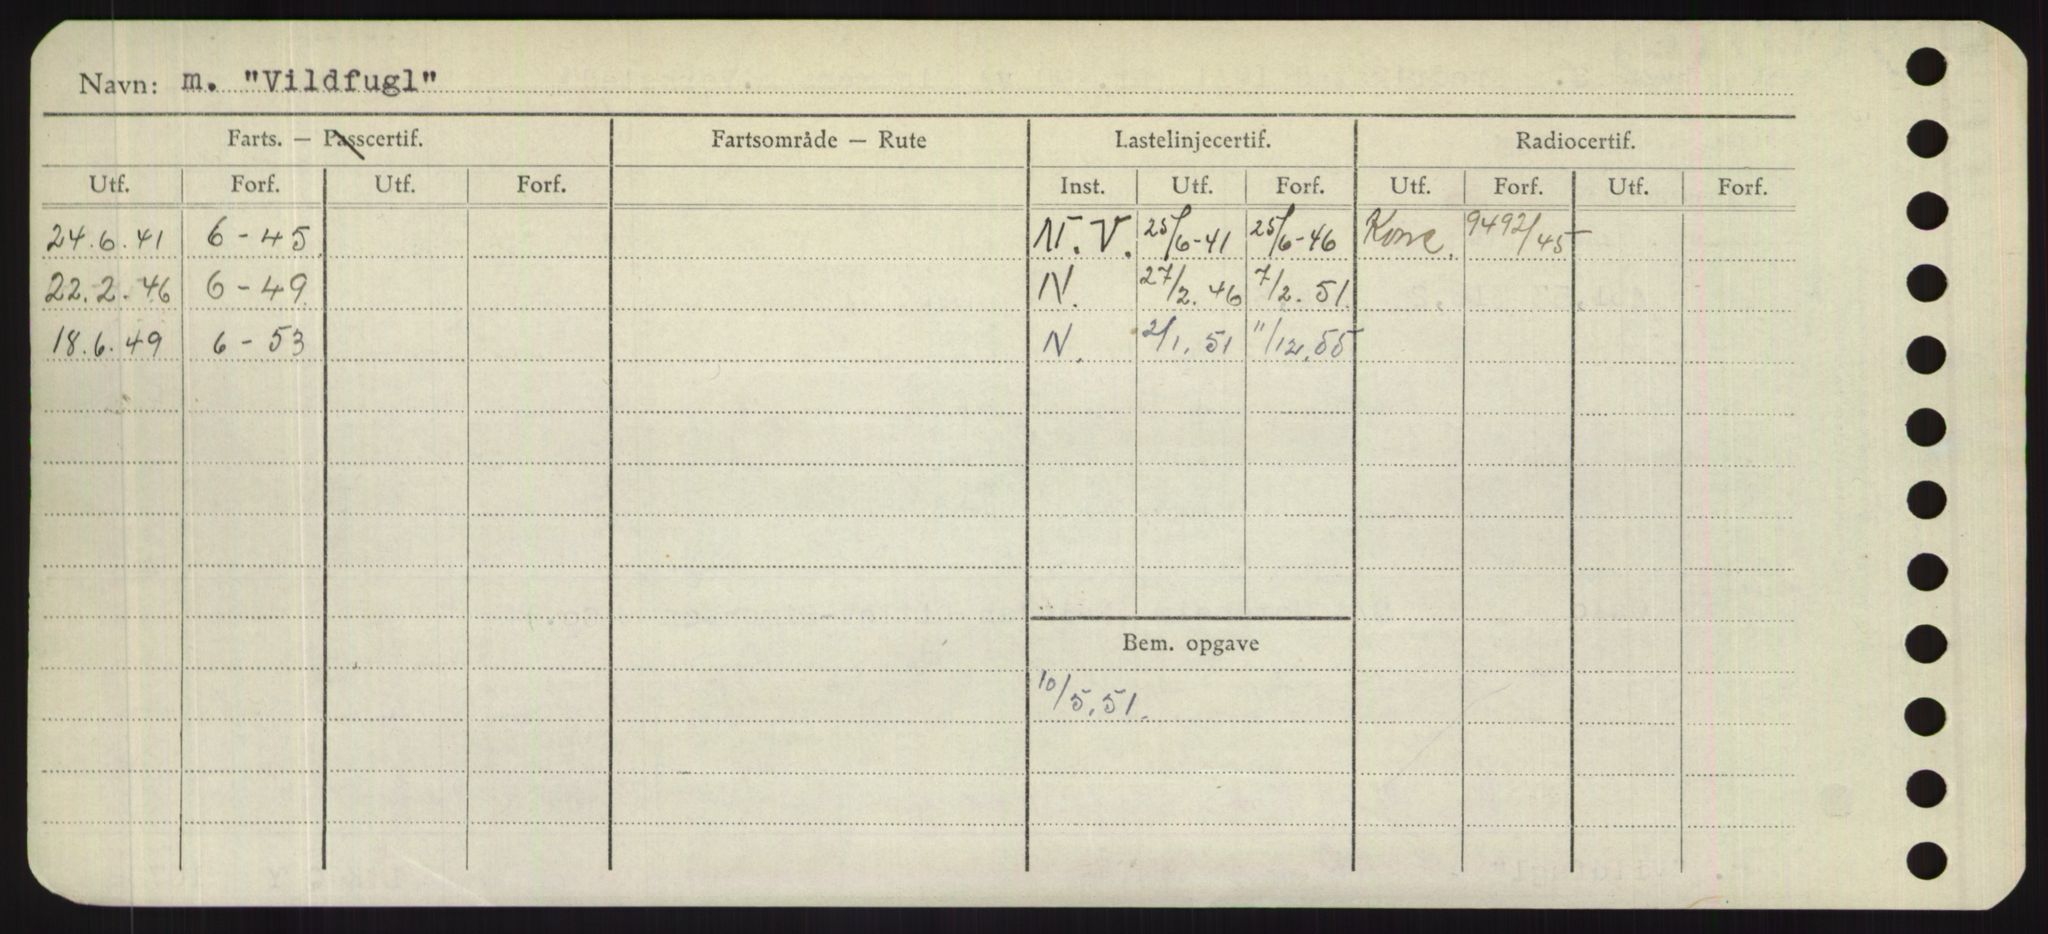 Navn: m. "Vildfugl"
Farts. — Passcertif. Fartsområde — Rute Lastelinjecertif. Radiocertif.
Utf. Forf. Utf. Forf. Inst. Utf. Forf. Utf. Forf. Utf. Forf.
24.6.41 6-45 N.V. 25/6-41 25/6-46 9492/45
22.2.46 6-49 N. 27/2.46 7/2.51.
18.6.49 6-53 N. 2/1.51 11/12.55
Bem. opgave
10/5.51.